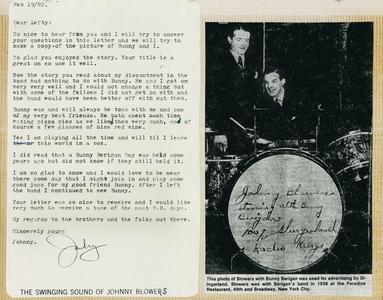 Feb 19/82.
Dear Lefty:
So nice to hear from you and I will try to answer
your questions in this letter and we will try to
make a copy of the picture of Bunny and I.
So glad you enjoyed the story. Your title is a
great on so use it well.
Now the story you read about my discontent in the
band had nothing to do with Bunny. He and I got on
very very well and I would not change a thing but
with some of the fellows I did not get on with and
the band would have been better off with out then.
Bunny was and will always be tops with me and one
of my very best friends. We both spent much time
eating pizza pies as we liked them very much, and of
course a few glasses of nice red wine.
Yes I am playing all the time and will til I leave
this world in a box.
I did read that a Bunny Berigan Day was held some
years ago but did not know if they still held it.
I am so glad to know and I would love to be near
there some day that I might join in and play some
good jazz for my good friend Bunny. After I left
the band I continued to see Bunny.
Your letter was so nice to receive and I would like
very much to receive a tape of the past B.B. days.
My regards to the brothers and the folks out there.
Sincerely yours
Johnny.
THE SWINGING SOUND OF JOHNNY BLOWERS
Johnny Blowers
with Bunny
Berigan
1007 Slingerland
Radio Kings
This photo of Blowers with Bunny Berigan was used for advertising by Sl-
ingerland. Blowers was with Berigan's band in 1938 at the Paradise
Restaurant, 49th and Broadway, New York City.